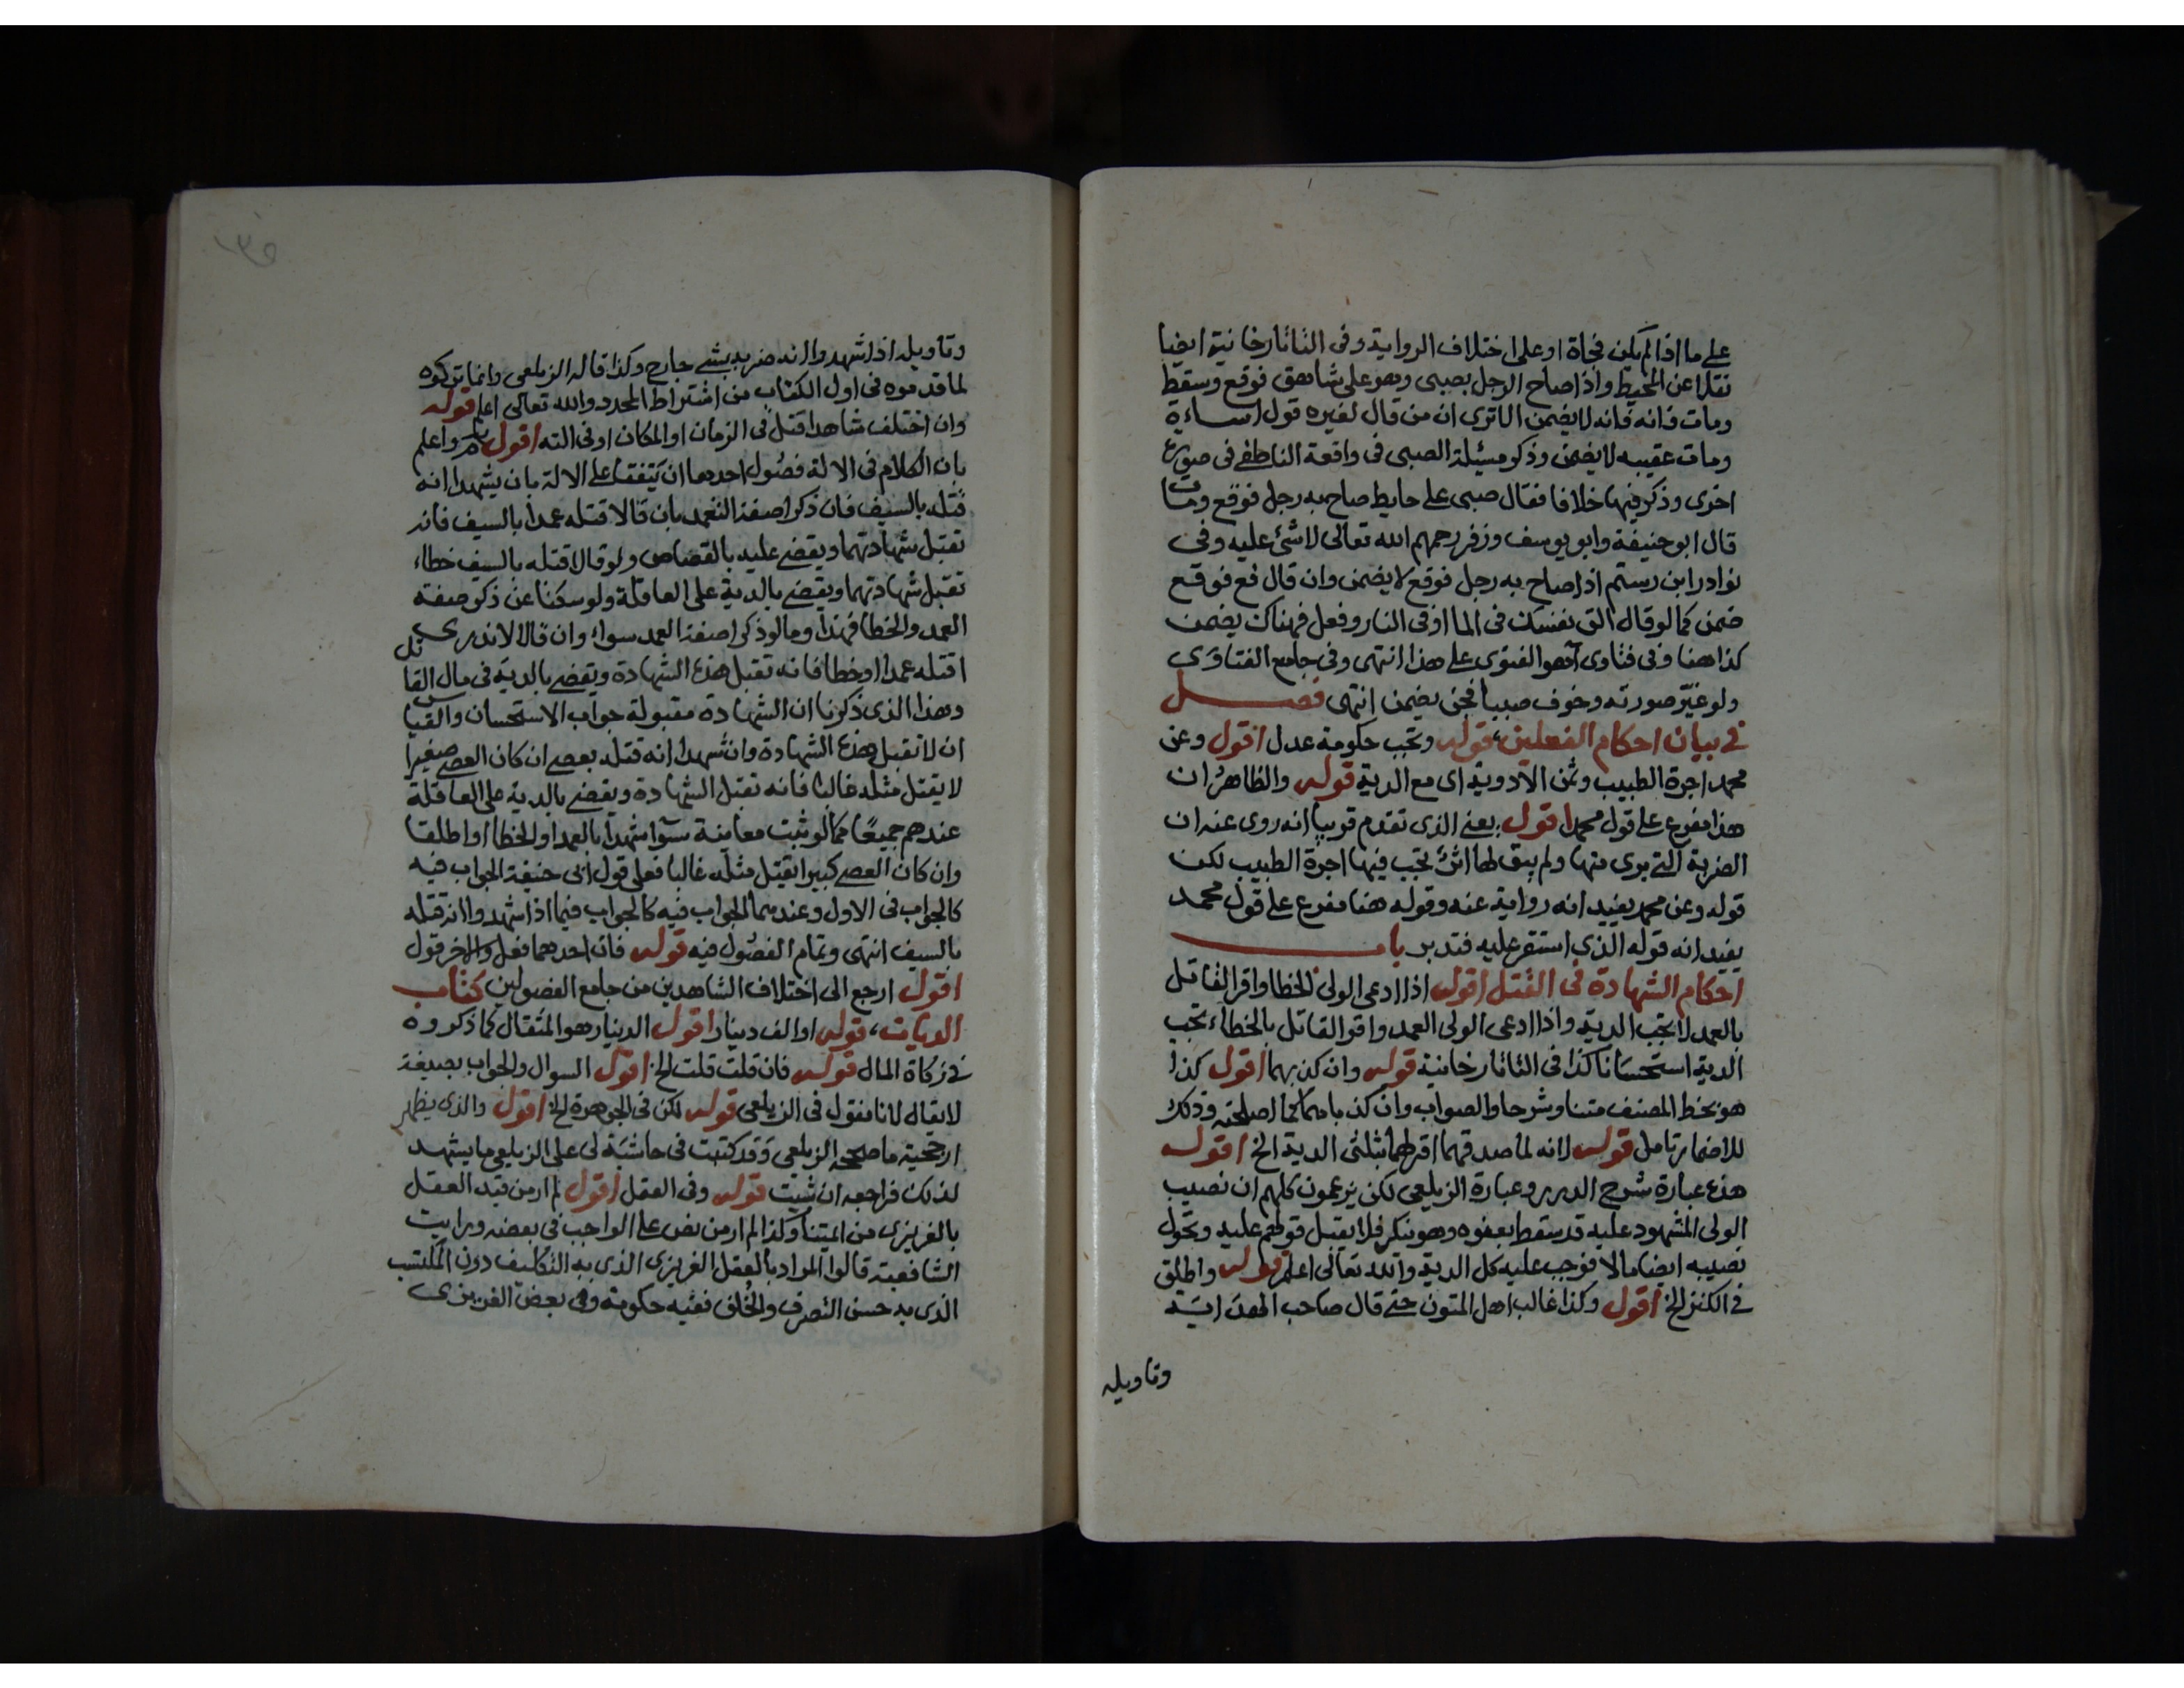 على ما اذا لم يكن فجاة او على اختلاف الرواية وفى التاتارخانية ايضا
نقلا عن المحيط واذا صاح الرجل بصبى وهو على شاهق فوقع وسقط
ومات فانه فانه لا يضمن الا ترى ان من قال لغيره قول اساءة
ومات عقيبه لا يضمن وذكر مسئلة الصبى فى واقعة الناطفى فى صورة
اخرى وذكر فيها خلافا فقال صبى على حايط صاح به رجل فوقع ومات
قال ابو حنيفة وابو يوسف وزفر رحمهم الله تعالى لا شئ عليه وفى
نوادر ابن رستم اذا صاح به رجل فوقع لا يضمن وان قال قع فوقع
ضمن كما لو قال الق نفسك فى الما او فى النار وفعل فهناك يضمن
كذا هنا وفى فتاوى آهو الفتوى على هذا انتهى وفى جامع الفتاوى
ولو غير صورته وخوف صبيا فجن يضمن انتهى فصل
فى بيان احكام الفعلين، قوله وتجب حكومة عدل اقول وعن
محمد اجرة الطبيب وثمن الادوية اى مع الدية قوله والظاهر ان
هذا مفرع على قول محمد اقول يعنى الذى تقدم قريبا انه روى عنه ان
الضربة التى برى منها ولم يبق لها اثر تجب فيها اجرة الطبيب لكن
قوله وعن محمد يفيد انه رواية عنه وقوله هنا مفرع على قول محمد
يفيد انه قوله الذى استقر عليه فتدبر باب
احكام الشهادة فى القتل اقول اذا ادعى الولى الخطا واقر القاتل
بالعمد لا تجب الدية واذا ادعى الولى العمد واقر القاتل بالخطاء تجب
الدية استحسانا كذا فى التاتارخانية قوله وان كذبهما اقول كذا
هو بخط المصنف متنا وشرحا والصواب وان كذباهما كما اصلحته وذلك
للاضمار تامل قوله لانه لما صدقهما اقر لهما بثلثى الدية الخ اقول
هذه عبارة شرح الدرر وعبارة الزيلعى لكن يزعمون كلهم ان نصيب
الولى المشهود عليه قد سقط بعفوه وهو ينكر فلا يقبل قولهم عليه وتحول
نصيبه ايضا مالا فوجب عليه كل الدية والله تعالى اعلم قوله واطلق
فى الكنز الخ اقول وكذا غالب اهل المتون حتى قال صاحب الهداية
وتاويله
وتاويله اذا شهدوا انه ضربه بشى جارح وكذا قاله الزيلعى وانما تركوه
لما قدموه فى اول الكتاب من اشتراط المحدد والله تعالى اعلم قوله
وان اختلف شاهدا قتل فى الزمان او المكان او فى الته اقول واعلم
بان الكلام فى الالة فصول احدهما ان يتفقا على الالة بان يشهدا انه
قتله بالسيف فان ذكرا صفة التعمد بان قالا قتله عمدا بالسيف فانه
تقبل شهادتهما ويقضى عليه بالقصاص ولو قالا قتله بالسيف خطاء
تقبل شهادتهما ويقضى بالدية على العاقلة ولو سكتا عن ذكر صفة
العمد والخطا فهذا وما لو ذكرا صفة العمد سواء وان قالا لا ندرى
اقتله عمدا او خطا فانه تقبل هذه الشهادة ويقضى بالدية فى مال القاتل
وهذا الذى ذكرنا ان الشهادة مقبولة جواب الاستحسان والقياس
ان لا تقبل هذه الشهادة وان شهدا انه قتله بعصى ان كان العصى صغيرا
لا يقتل مثله غالبا فانه تقبل الشهادة ويقضى بالدية على العاقلة
عندهم جميعا كما لو ثبت معاينة سوا شهدا بالعمد او الخطا او اطلقا
وان كان العصى كبيرا تقتل مثله غالبا فعلى قول ابى حنيفة الجواب فيه
كالجواب فى الاول وعندهما الجواب فيه كالجواب فيما اذا شهدوا انه قتله
بالسيف انتهى وتمام الفصول فيه قوله فان احدهما فعل والاخر قول
اقول ارجع الى اختلاف الشاهدين من جامع الفصولين كتاب
الديات، قوله او الف دينار اقول الدينار هو المثقال كما ذكروه
فى زكاة المال قوله فان قلت قلت الخ اقول السوال والجواب بصيغة
لا يقال لانا نقول فى الزيلعى قوله لكن فى الجوهرة الخ اقول والذى يظهر
ارجحية ما صححه الزيلعى وقد كتبت فى حاشية لى على الزيلعى ما يشهد
لذلك فراجعه ان شيت قوله وفى العقل اقول لم ار من قيد العقل
بالغريزى من ايمتنا وكذا لم ار من نص على الواجب فى بعضه ورايت
الشافعية قالوا المراد بالعقل الغريزى الذى به التكليف دون المكتسب
الذى به حسن التصرف والخلق ففيه حكومة وفى بعض الغريزى